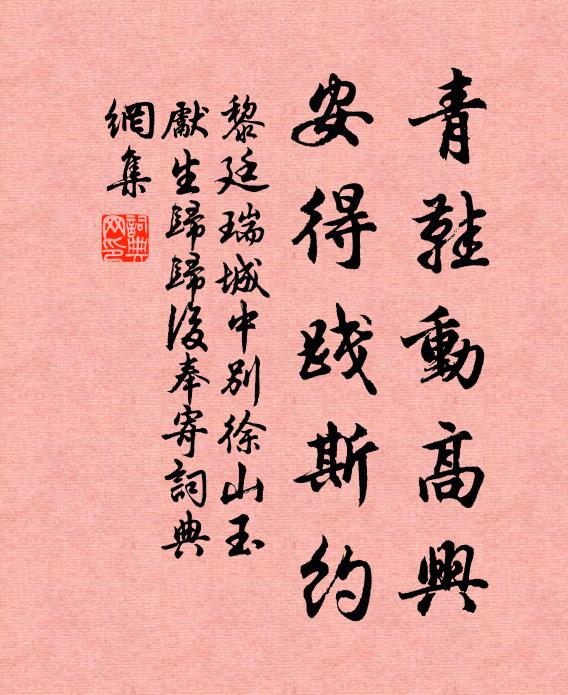 青鞋動高興
安得踐斯約
黎廷瑞城中別徐山玉
獻生歸歸後奉寄詞典
網集
詞典
网印